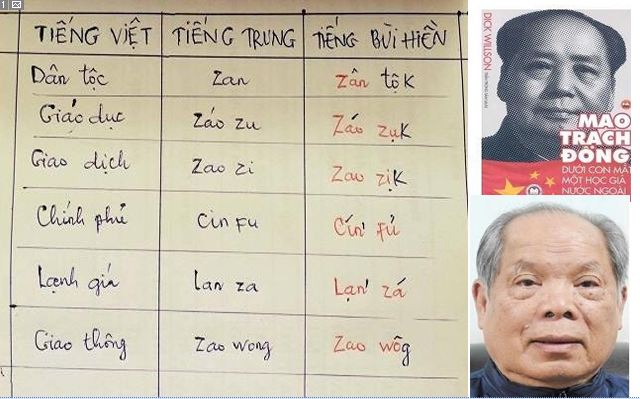 1
TIẾNG VIỆT TIẾNG TRUNG TIẾNG BÙI HIỀN
Dân tộc Zan Zân tộK
Giáo dục Záo zu Záo zụK
Giao dịch Zao zi Zao zịK
Chính phủ Cin Fu Cín' Fủ
Lạnh giá Lan za Lạn' zá
Giao thông Zao wong Zao wôg
DICK WILLSON
MAO
TRẠCH
ĐÔNG
DƯỚI CON MẮT
MỘT HỌC GIẢ
NƯỚC NGOÀI